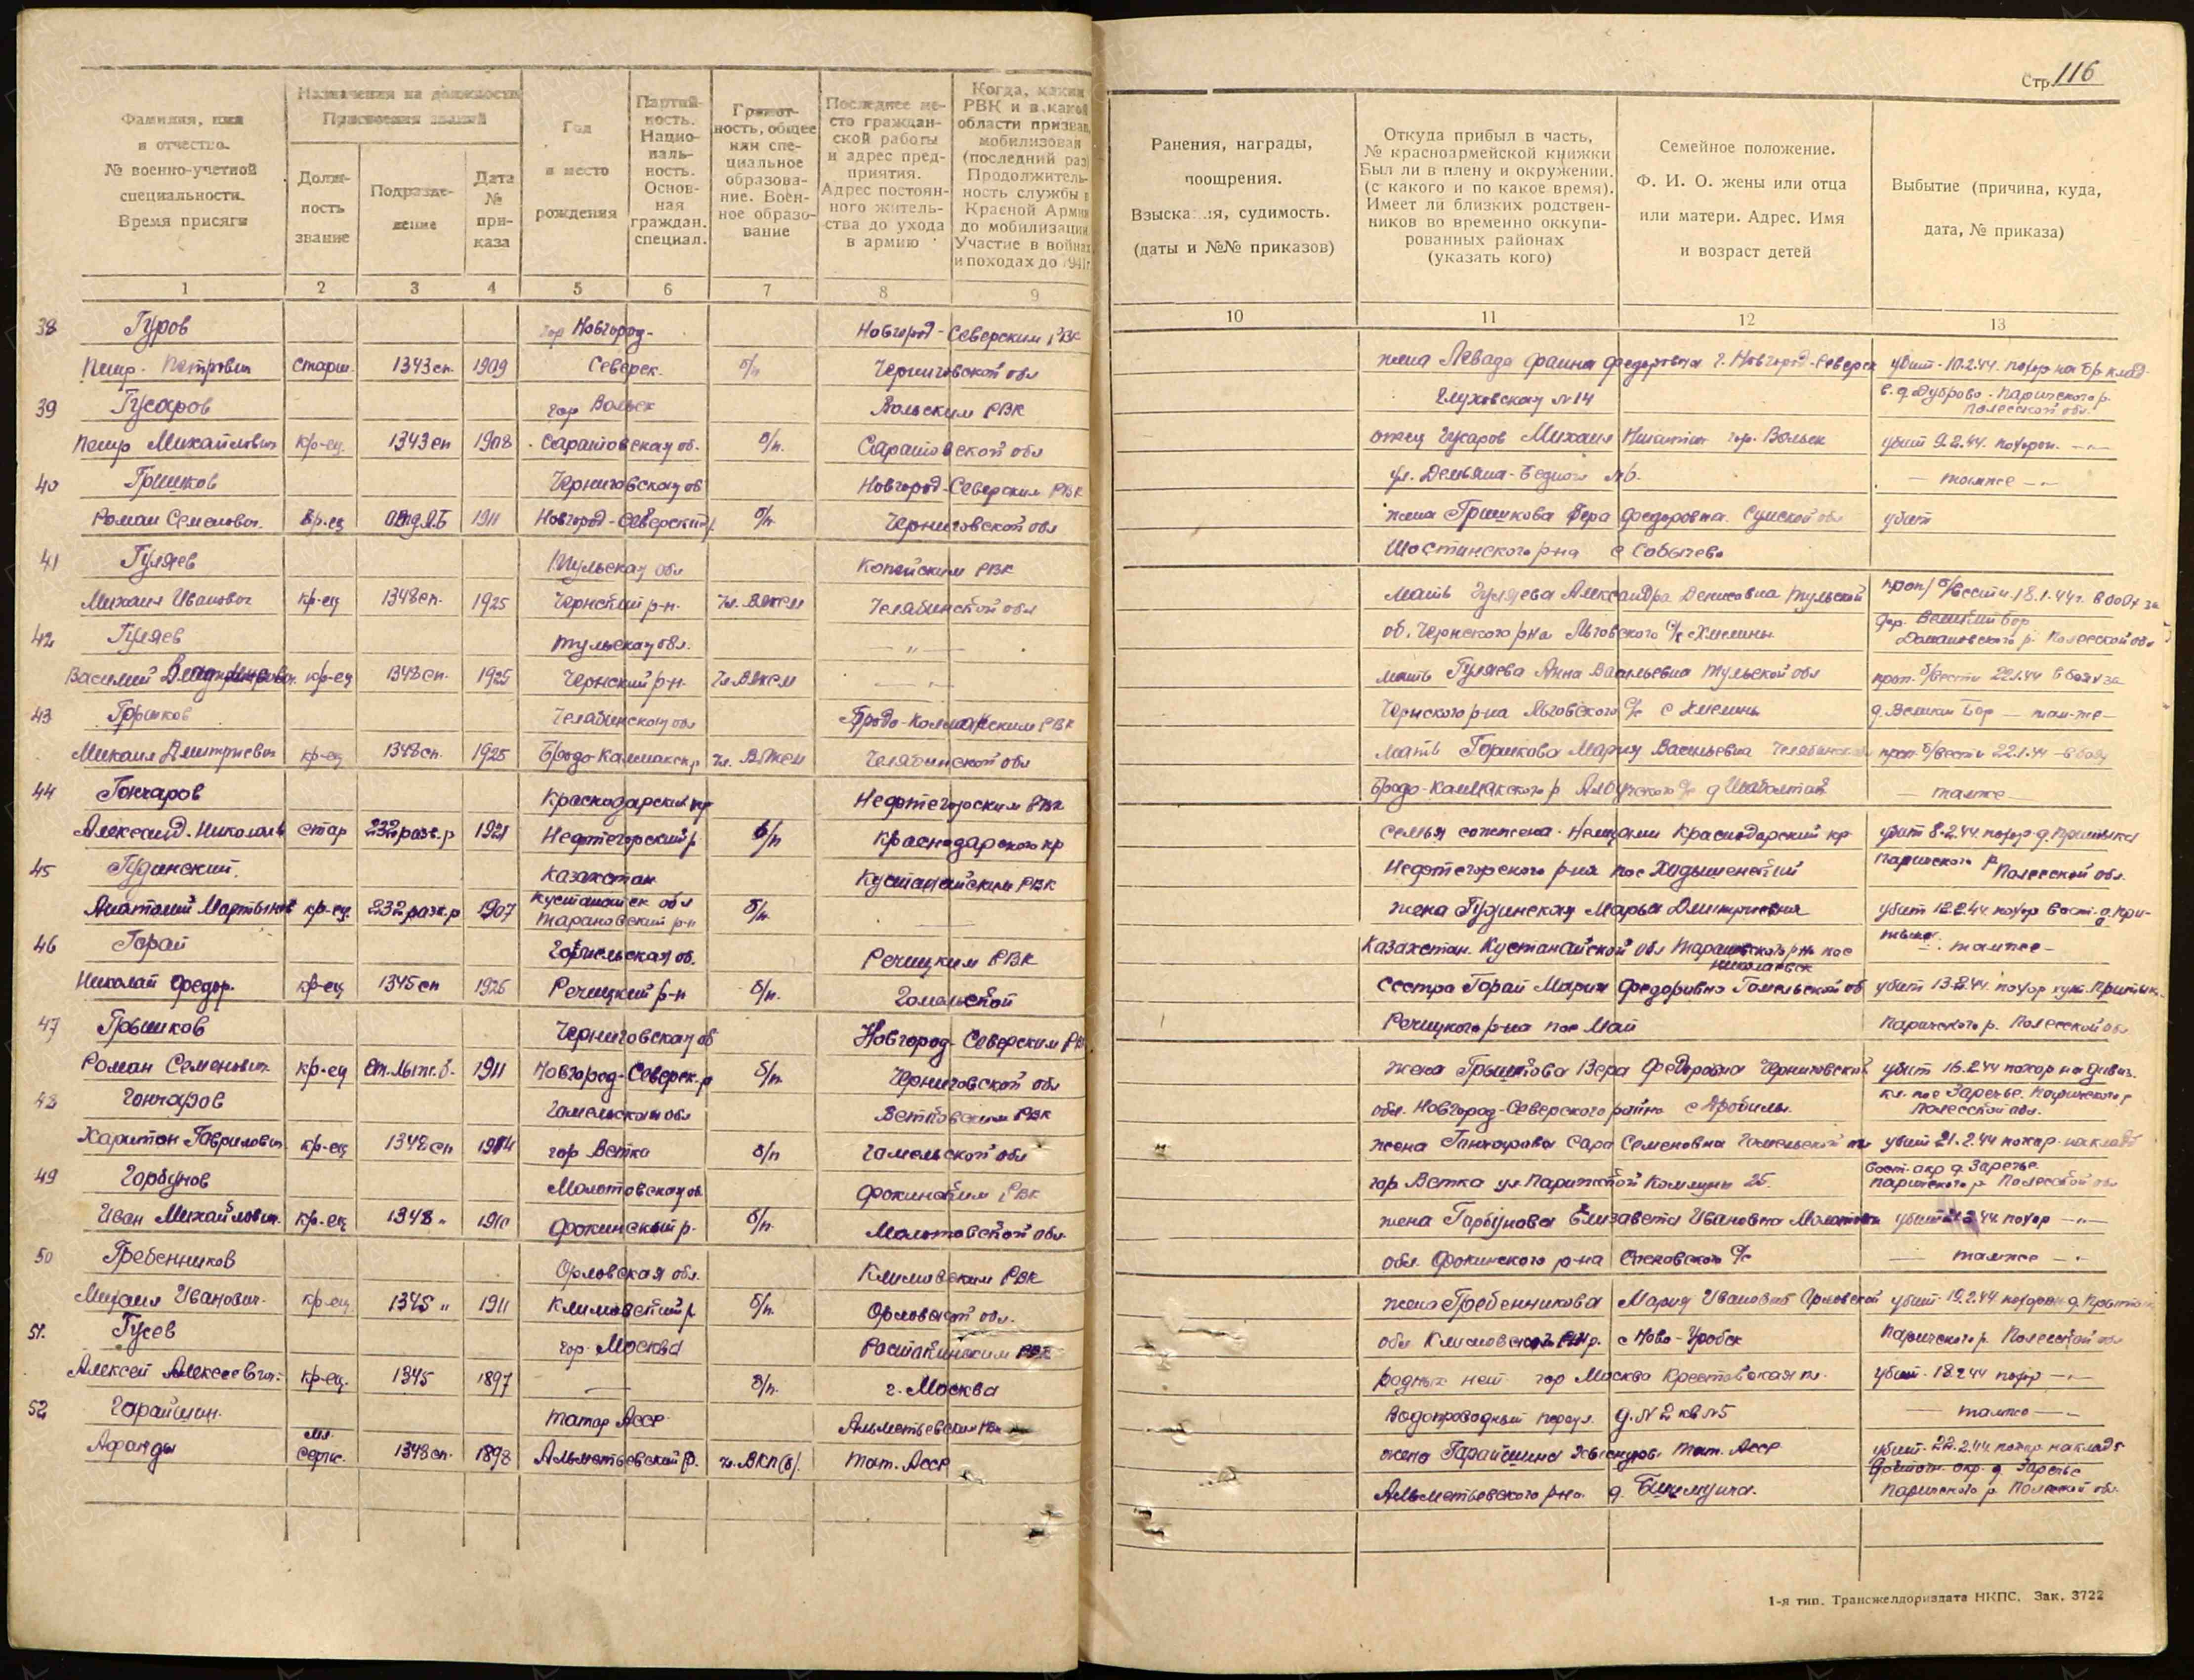 Стр. 116
Фамилия, имя
и отчество.
№ военно-учетной
специальности.
Время присяги
Назначения на должности
Присвоения званий
Долж-
ность
звание
Подразде-
ление
Дата
№
при-
каза
Год
и место
рождения
Партий-
ность.
Нацио-
наль-
ность.
Основ-
ная
граждан.
специал.
Грамот-
ность, общее
или спе-
циальное
образова-
ние. Воен-
ное образо-
вание
Последнее ме-
сто граждан-
ской работы
и адрес пред-
приятия.
Адрес постоян-
ного житель-
ства до ухода
в армию
Когда, каким
РВК и в какой
области призван,
мобилизован
(последний раз)
Продолжитель-
ность службы в
Красной Армии
до мобилизации
Участие в войнах
и походах до 1941 г.
Ранения, награды,
поощрения.
Взыскания, судимость.
(даты и №№ приказов)
Откуда прибыл в часть,
№ красноармейской книжки
Был ли в плену и окружении.
(с какого и по какое время).
Имеет ли близких родствен-
ников во временно оккупи-
рованных районах
(указать кого)
Семейное положение.
Ф. И. О. жены или отца
или матери. Адрес. Имя
и возраст детей
Выбытие (причина, куда,
дата, № приказа)
1 2 3 4 5 6 7 8 9 10 11 12 13
38 Гуров гор Новгород- Новгород-Северским РВК
Петр Петрович старш. 1343 сп. 1909 Северск. б/п Черниговской обл жена Левада Фаина Федоровна г. Новгород-Северск убит 10.2.44. похор на бр. клад.
39 Гусаров гор Вольск Вольским РВК Глуховская №14 в. д Дуброво Паричского р. Полесской обл.
Петр Михайлович кр-ец. 1343 сп 1908 Саратовская об. б/п. Саратовской обл отец Гусаров Михаил Никитич гор. Вольск убит 9.2.44. похорон. —„—
40 Гришков Черниговская об Новгород-Северским РВК ул. Демьяна-Бедного №6. — тамже —„—
Роман Семенович. кр-ец 1911 Новгород-Северский р. б/п. Черниговской обл жена Гришкова Вера Федоровна. Сумской обл убит
41 Гуляев Тульская обл Копейским РВК Шостинского р-на с Собычево
Михаил Иванович кр-ец 1348 сп. 1925 Чернский р-н. Чл. ВЛКСМ Челябинской обл мать Гуляева Александра Денисовна Тульской проп/ б/вести. 18.1.44г. в боях за
42 Гуляев Тульская обл. —„— об. Чернского р-на Льговского с/с с Хмелины. дер. Великий бор Домановского р. Полесской обл
Василий кр-ец 1348 сп. 1925 Чернский р-н. Чл. ВЛКСМ —„— мать Гуляева Анна Васильевна Тульской обл проп. б/вести 22.1.44 в боях за
43 Горшков Челябинская обл Бродо-Колмакским РВК Чернского р-на Льговского с/с с Хмелины д. Великий Бор — там-же —
Михаил Дмитриевич кр-ец 1348 сп. 1925 Бродо-Калмакск. р. Чл. ВЛКСМ Челябинской обл мать Горшкова Мария Васильевна Челябинская проп. б/вести 22.1.44 — в боях
44 Гончаров Краснодарский кр Нефтегорским РВК Бродо-Калмакского р — тамже —
Александ. Николаев стар 232 разв. р 1921 Нефтегорский р. б/п Краснодарского кр семья сожжена немцами Краснодарский кр убит 8.2.44. похор. д. Притыка
45 Гудинский. Казахстан Кустанайским РВК Нефтегорского р-на пос Хадыженский Паричского р Полесской обл.
Анатолий Мартынов кр-ец. 232 разв. р 1907 Кустанайск обл Тарановский р-н б/п. жена Гудинская Марья Дмитриевна убит 12.2.44. похор Вост. д. При-
46 Горай Гомельская об. Речицким РВК Казахстан. Кустанайской обл Тарановского р-на пос Николаевск тыка. тамже —
Николай Федор. кр-ец 1345 сп 1926 Речицкий р-н б/п. Гомельской сестра Горай Мария Федоровна Гомельской об убит 13.2.44. похор хут. Притык.
47 Грышков Черниговская об Новгород-Северским РВК Речицкого р-на пос Май Паричского р. Полесской обл
Роман Семенович. кр-ец 1911 Новгород-Северск. р б/п. Черниговской обл жена Грышкова Вера Федоровна Черниговской убит 16.2.44 похор на дивиз.
48 Гончаров Гомельская обл Ветковским РВК обл. Новгород-Северского района с кл. пос Заречье. Паричского р Полесской обл.
Харитон Гаврилович кр-ец 1348 сп 1904 гор Ветка б/п Гомельской обл жена Гончарова Сара Семеновна Гомельской обл убит 21.2.44 похор. на кладб
49 Горбунов Молотовская об. Фокинским РВК гор Ветка ул. Парижской Коммуны 25. Вост. окр д. Заречье Паричского р. Полесской обл
Иван Михайлович. кр-ец 1348 „ 1910 Фокинский р. б/п. Молотовской обл. жена Горбунова Елизавета Ивановна Молотовск убит 44. похор —„—
50 Гребенников Орловская обл. Климовским РВК обл. Фокинского р-на с/с — тамже —„
Михаил Иванович. кр-ец. 1345 „ 1911 Климовский р б/п. Орловской обл. жена Гребенникова Мария Ивановна Орловской убит. 19.2.44 похорон д.
51. Гусев гор. Москва Ростокинским РВК обл Климовского р. с Ново- Паричского р. Полесской обл
Алексей Алексеевич. кр-ец. 1345 1897 — б/п. г. Москва родных нет гор Москва Крестовская пл. убит. 18.2.44 похор —„—
52 Гарайшин. Татар АССР Альметьевским РВК Водопроводный переул. д. №2 кв №5 — тамже —„
Афанды мл. сержс. 1348 сп. 1898 Альметьевский р. чл. ВКП(б). Тат. АССР жена Гарайшина Тат. АССР убит. 22.2.44 похор. на кладб
Альметьевского р-на. д. окр. д. Заречье
Паричского р. Полесской обл.
1-я тип. Трансжелдориздата НКПС. Зак. 3722